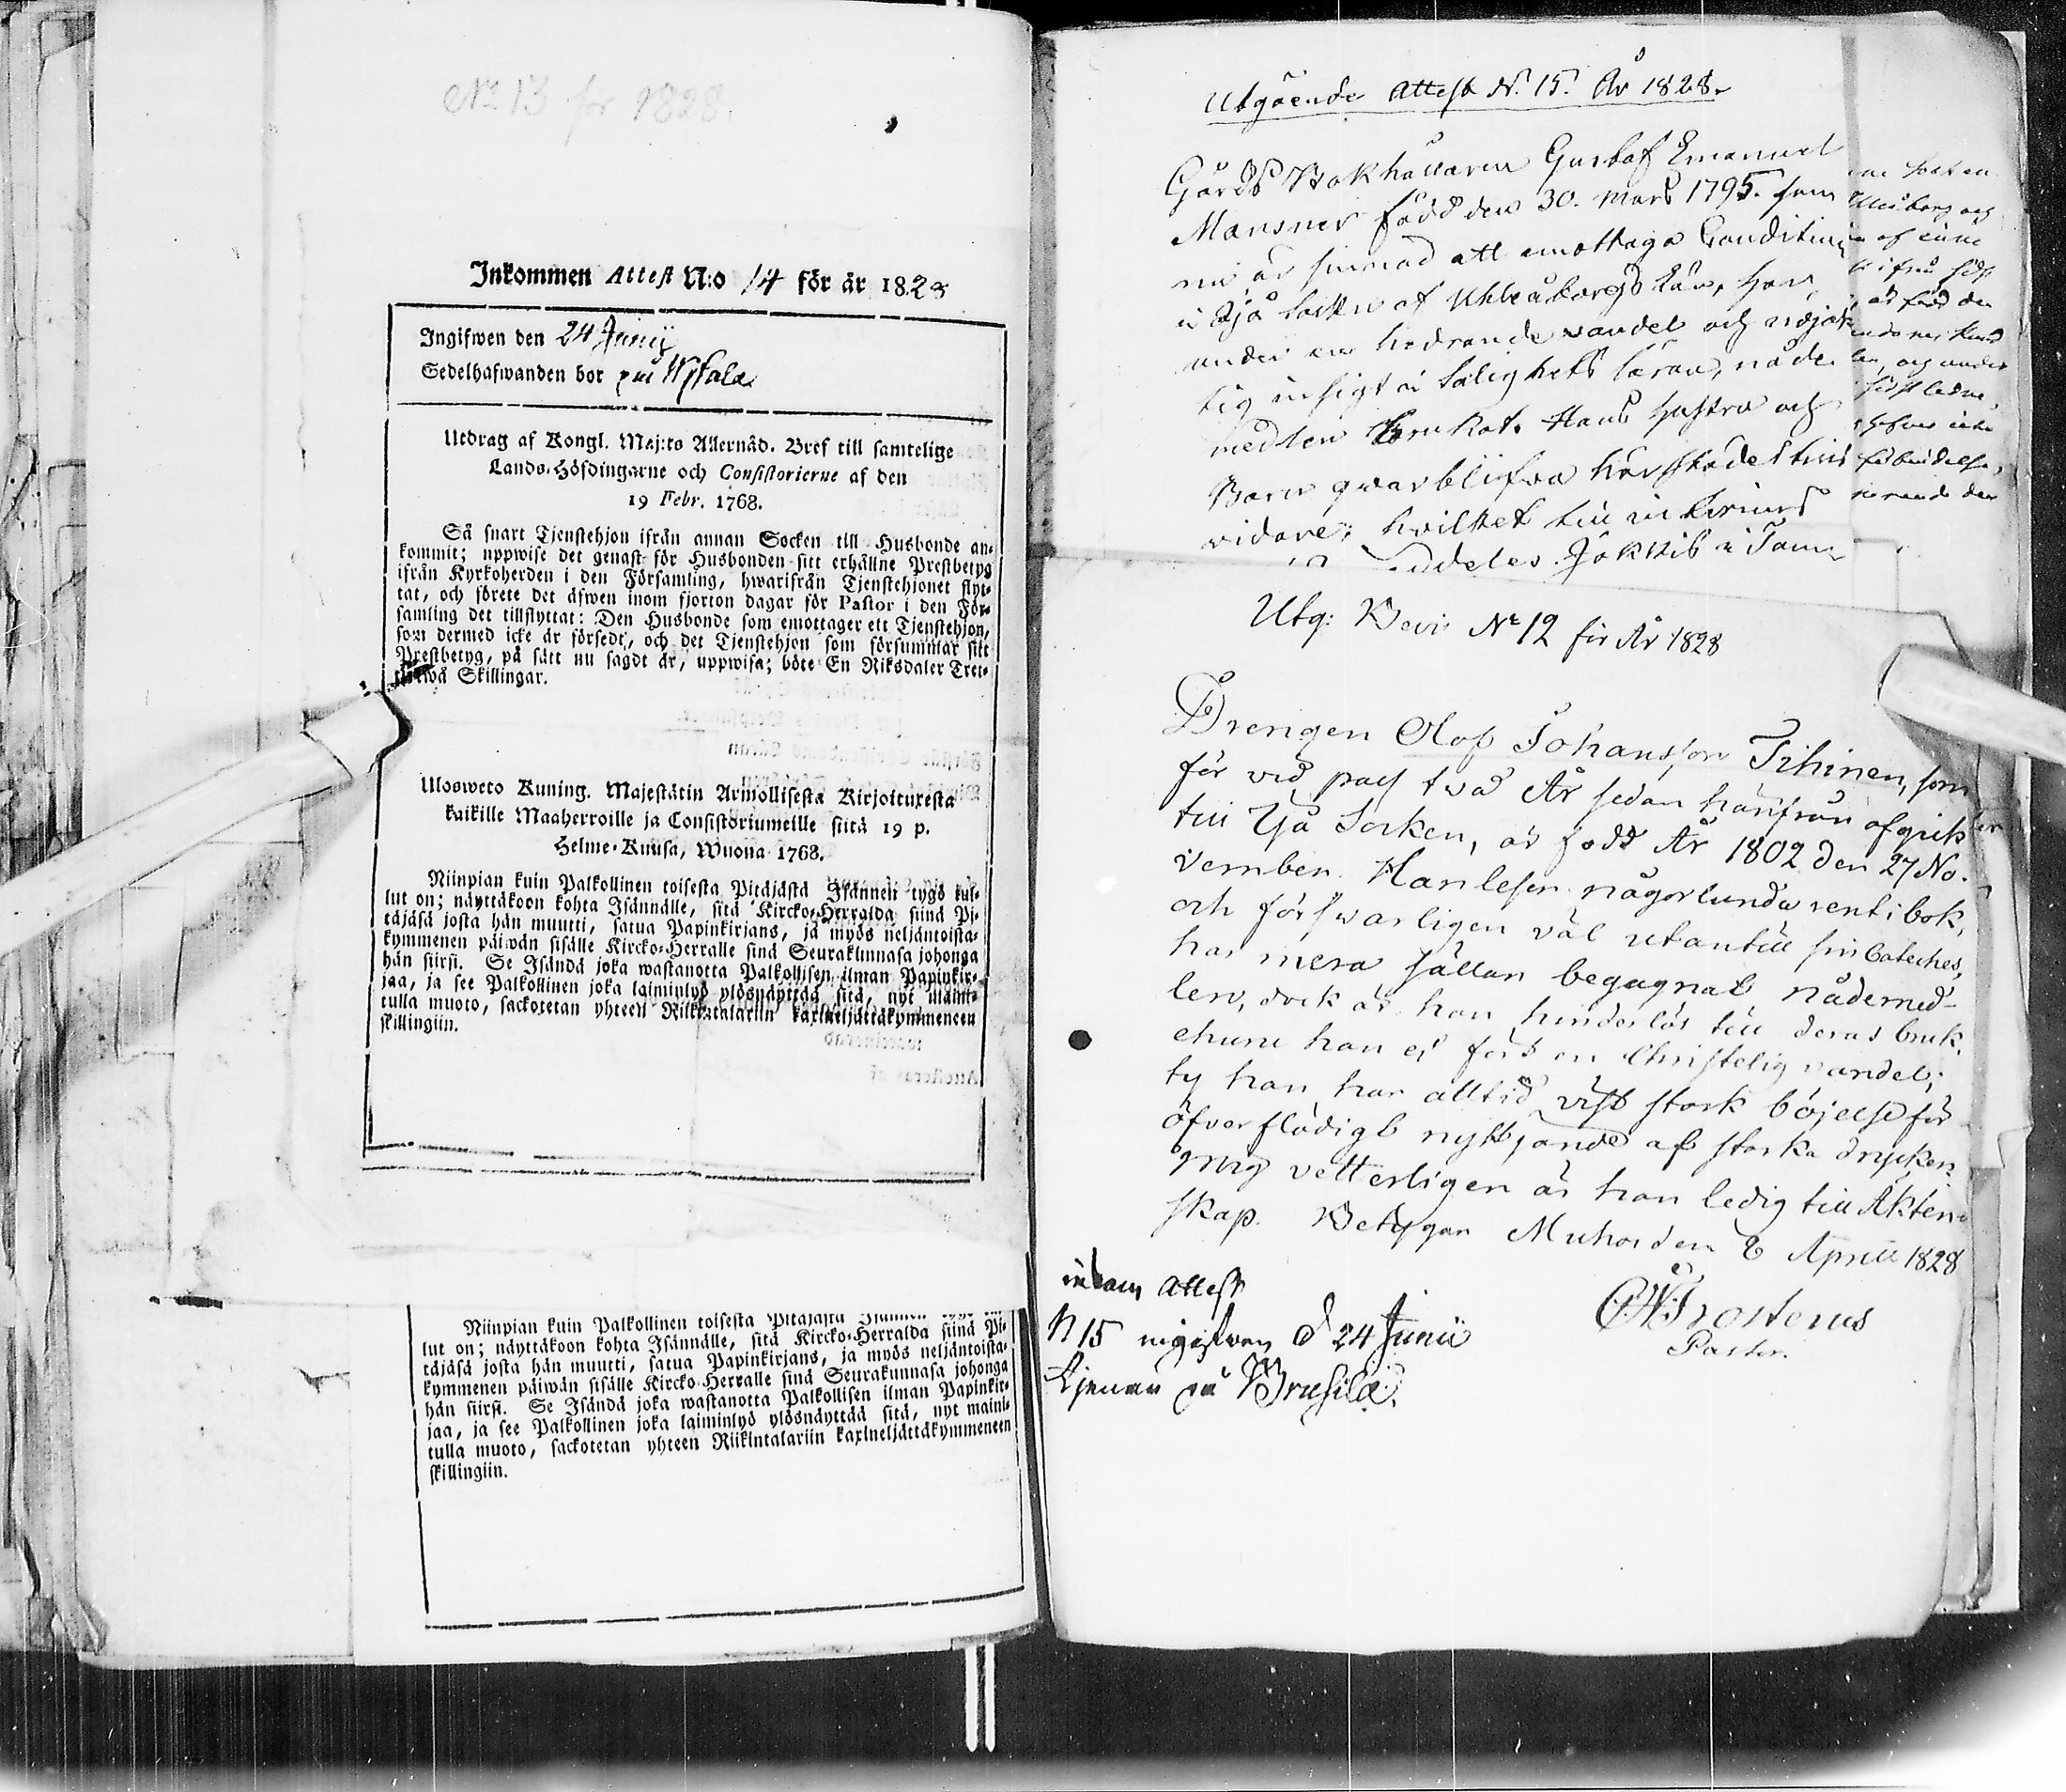 No 13 för 1828.
Inkommen Attest N:o 14 för år 1828
Ingifwen den 24 Junii
Sedelhafwanden bor på
Utdrag af Kongl. Maj:ts Allernåd. Bref till samtelige
Lands-Höfdingarne och Consistorierne af den
19 Febr. 1768.
Så snart Tjenstehjon ifrån annan Socken till Husbonde an-
kommit; uppwise det genast för Husbonden sitt erhållne Prestbetyg
ifrån Kyrkoherden i den Församling, hwarifrån Tjenstehjonet flyt-
tat, och förete det äfwen inom fjorton dagar för Pastor i den För-
samling det tillflyttat: Den Husbonde som emottager ett Tjenstehjon,
som dermed icke är försedt, och det Tjenstehjon som försummar sitt
Prestbetyg, på sätt nu sagdt är, uppwisa; böte En Riksdaler Tret-
två Skillingar.
Ulosweto Kuning. Majestätin Armollisesta Kirjoituxesta
kaikille Maaherroille ja Consistoriumeille siitä 19 p.
Helme-Kuusa, Wuona 1768.
Niinpian kuin Palkollinen toisesta Pitäjästä Isännen tygö tul-
lut on; näyttäkoon kohta Isännälle, sitä Kircko-Herralda siinä Pi-
täjäsä josta hän muutti, saatua Papinkirjans, ja myös neljäntoista-
kymmenen päiwän sisälle Kircko-Herralle sinä Seurakunnasa johonga
hän siirsi. Se Isändä joka wastanotta Palkollisen ilman Papinkir-
jaa, ja see Palkollinen joka laiminlyö ylösnäyttää sitä, nyt maini-
tulla muoto, sackotetan yhteen Riikintalariin kaxineljättäkymmeneen
skillingiin.
Niinpian kuin Palkollinen toisesta Pitäjästä Isännen
lut on; näyttäkoon kohta Isännälle, sitä Kircko-Herralda siinä Pi-
täjäsä josta hän muutti, saatua Papinkirjans, ja myös neljäntoista-
kymmenen päiwän sisälle Kircko-Herralle sinä Seurakunnasa johonga
hän siirsi. Se Isändä joka wastanotta Palkollisen ilman Papinkir-
jaa, ja see Palkollinen joka laiminlyö ylösnäyttää sitä, nyt maini-
tulla muoto, sackotetan yhteen Riikintalariin kaxineljättäkymmeneen
skillingiin.
Utgående Attest N. 15. År 1828.
Gårds Bokhållaren Gustaf Emanuel
Mansner född den 30. Mars 1795. som
nu är sinnad att emottaga Condition
i Ijo Socken af Uhleåborgs Län, har
under en hedrande vandel och nöjak
tig insigt i Salighets läran, nåde
medlen brukat. Hans hustru och
Barn qwarblifwa härstädes tills
vidare; hvilket till
meddeles. Jokkis i Tam
Utg: Bevis No 12 för År 1828
Drengen Olof Johansson Tihinen, som
för vid pass två År sedan härifrån afgick
till Ijå Socken, är född År 1802 den 27 No-
vember. Han läser någorlunda rent i bok,
och försvarligen väl utantill sin Cateches,
har mera sällan begagnat nådemed-
len, dock är han hinderlös till deras bruk,
ehuru han ej fört en Christelig vandel;
ty han har alltid vist stark böjelse för
öfverflödigt nyttjande af starka drycker.
vetterligen är han ledig till Äkten-
skap. Betygar Muhos den 8 April 1828
Frosterus
Pastor.
inkom Attest
N 15 ingifwen d 24 Junii
tjenar på Brusila.